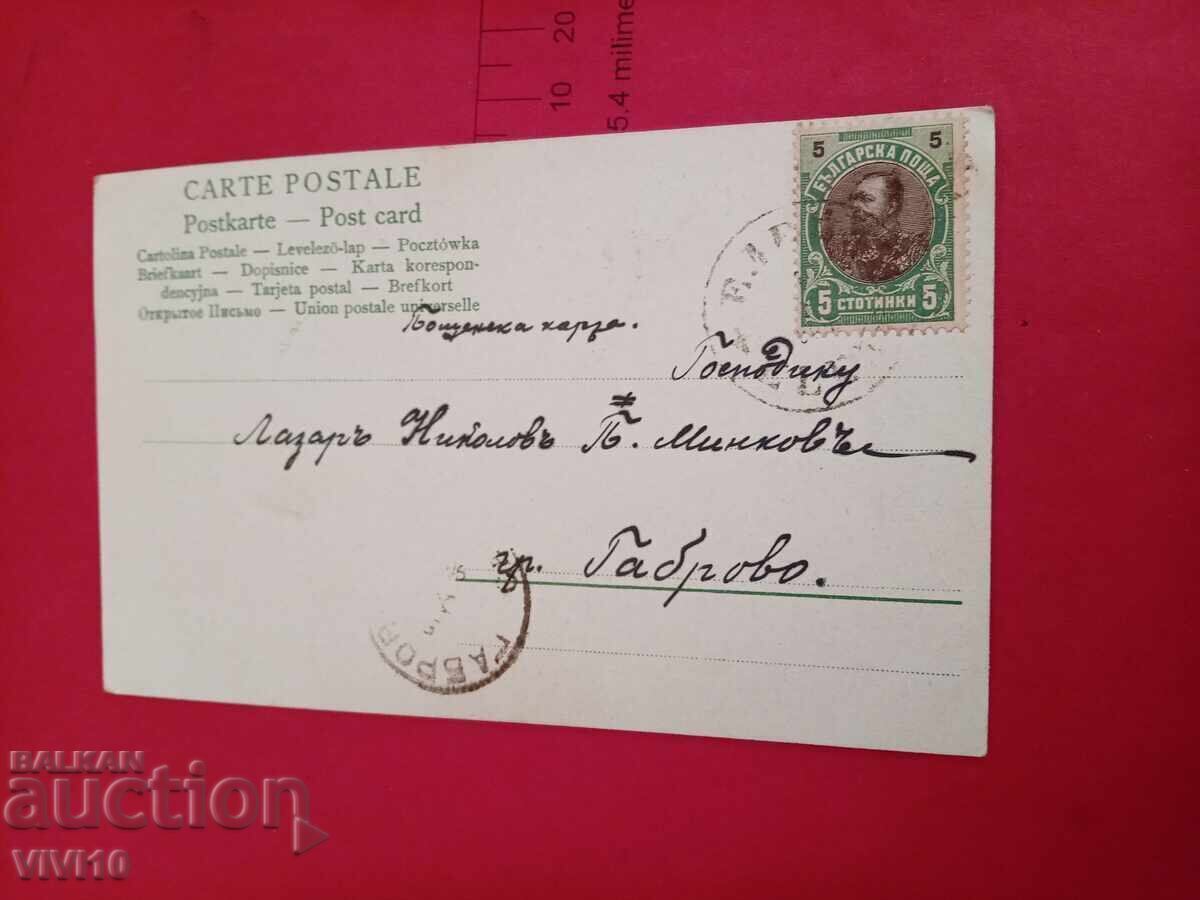 10 20
5.4 milime
CARTE POSTALE
Postkarte — Post card
Cartolina Postale — Levelezö-lap — Pocztówka
Briefkaart — Dopisnice — Karta korespon-
dencyjna — Tarjeta postal — Brefkort
Открытое Письмо — Union postale universelle
5 5
БЪЛГАРСКА ПОЩА
5 СТОТИНКИ 5
Пощенска карта.
Господину
Лазаръ Николовъ П. Минковъ
гр. Габрово.
ГАБРОВ
BALKAN
auction
VIVI10